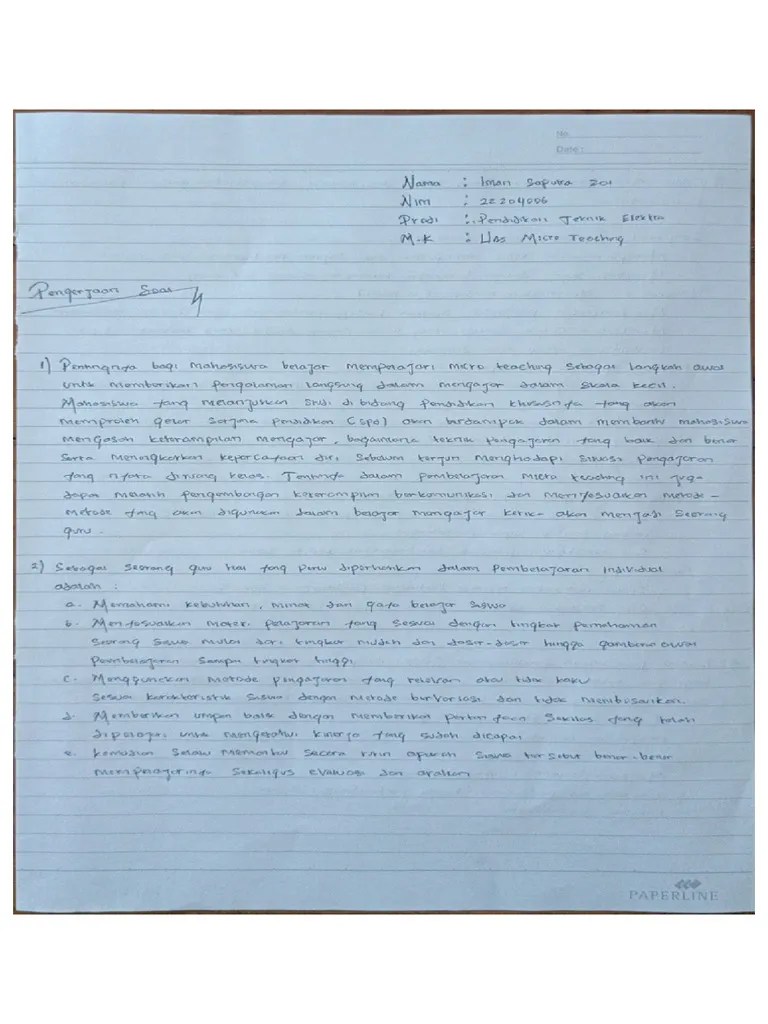 No.
Date :
Nama : Iman Saputra
Nim : 22204006
Prodi : Pendidikan Teknik Elektro
M.K : UAS Micro Teaching
Pengerjaan Soal
1) Pentingnya bagi mahasiswa belajar mempelajari micro teaching sebagai langkah awal
untuk memberikan pengalaman langsung dalam mengajar dalam skala kecil.
Mahasiswa yang melanjutkan studi di bidang pendidikan khususnya yang akan
memperoleh gelar sarjana pendidikan (Spd) akan berdampak dalam membantu mahasiswa
mengasah keterampilan mengajar, bagaimana teknik pengajaran yang baik dan benar
serta meningkatkan kepercayaan diri sebelum terjun menghadapi situasi pengajaran
yang nyata diruang kelas. Tentunya dalam pembelajaran micro teaching ini juga
dapat melatih pengembangan keterampilan berkomunikasi dan menyesuaikan metode-
metode yang akan digunakan dalam belajar mengajar ketika akan menjadi seorang
guru.
2) Sebagai seorang guru hal yang perlu diperhatikan dalam pembelajaran individual
adalah :
a. Memahami kebutuhan, minat dan gaya belajar siswa
b. Menyesuaikan materi pelajaran yang sesuai dengan tingkat pemahaman
seorang siswa mulai dari tingkat mudah dan dasar-dasar hingga gambaran awal
pembelajaran sampai tingkat tinggi.
c. Menggunakan metode pengajaran yang relevan atau tidak kaku
sesuai karakteristik siswa dengan metode bervariasi dan tidak membosankan.
d. Memberikan umpan balik dengan memberikan pertanyaan sekilas yang telah
dipelajari untuk mengetahui kinerja yang sudah dicapai
e. Kemudian selalu memantau secara rutin apakah siswa tersebut benar-benar
mempelajarinya sekaligus evaluasi dan arahan.
PAPERLINE